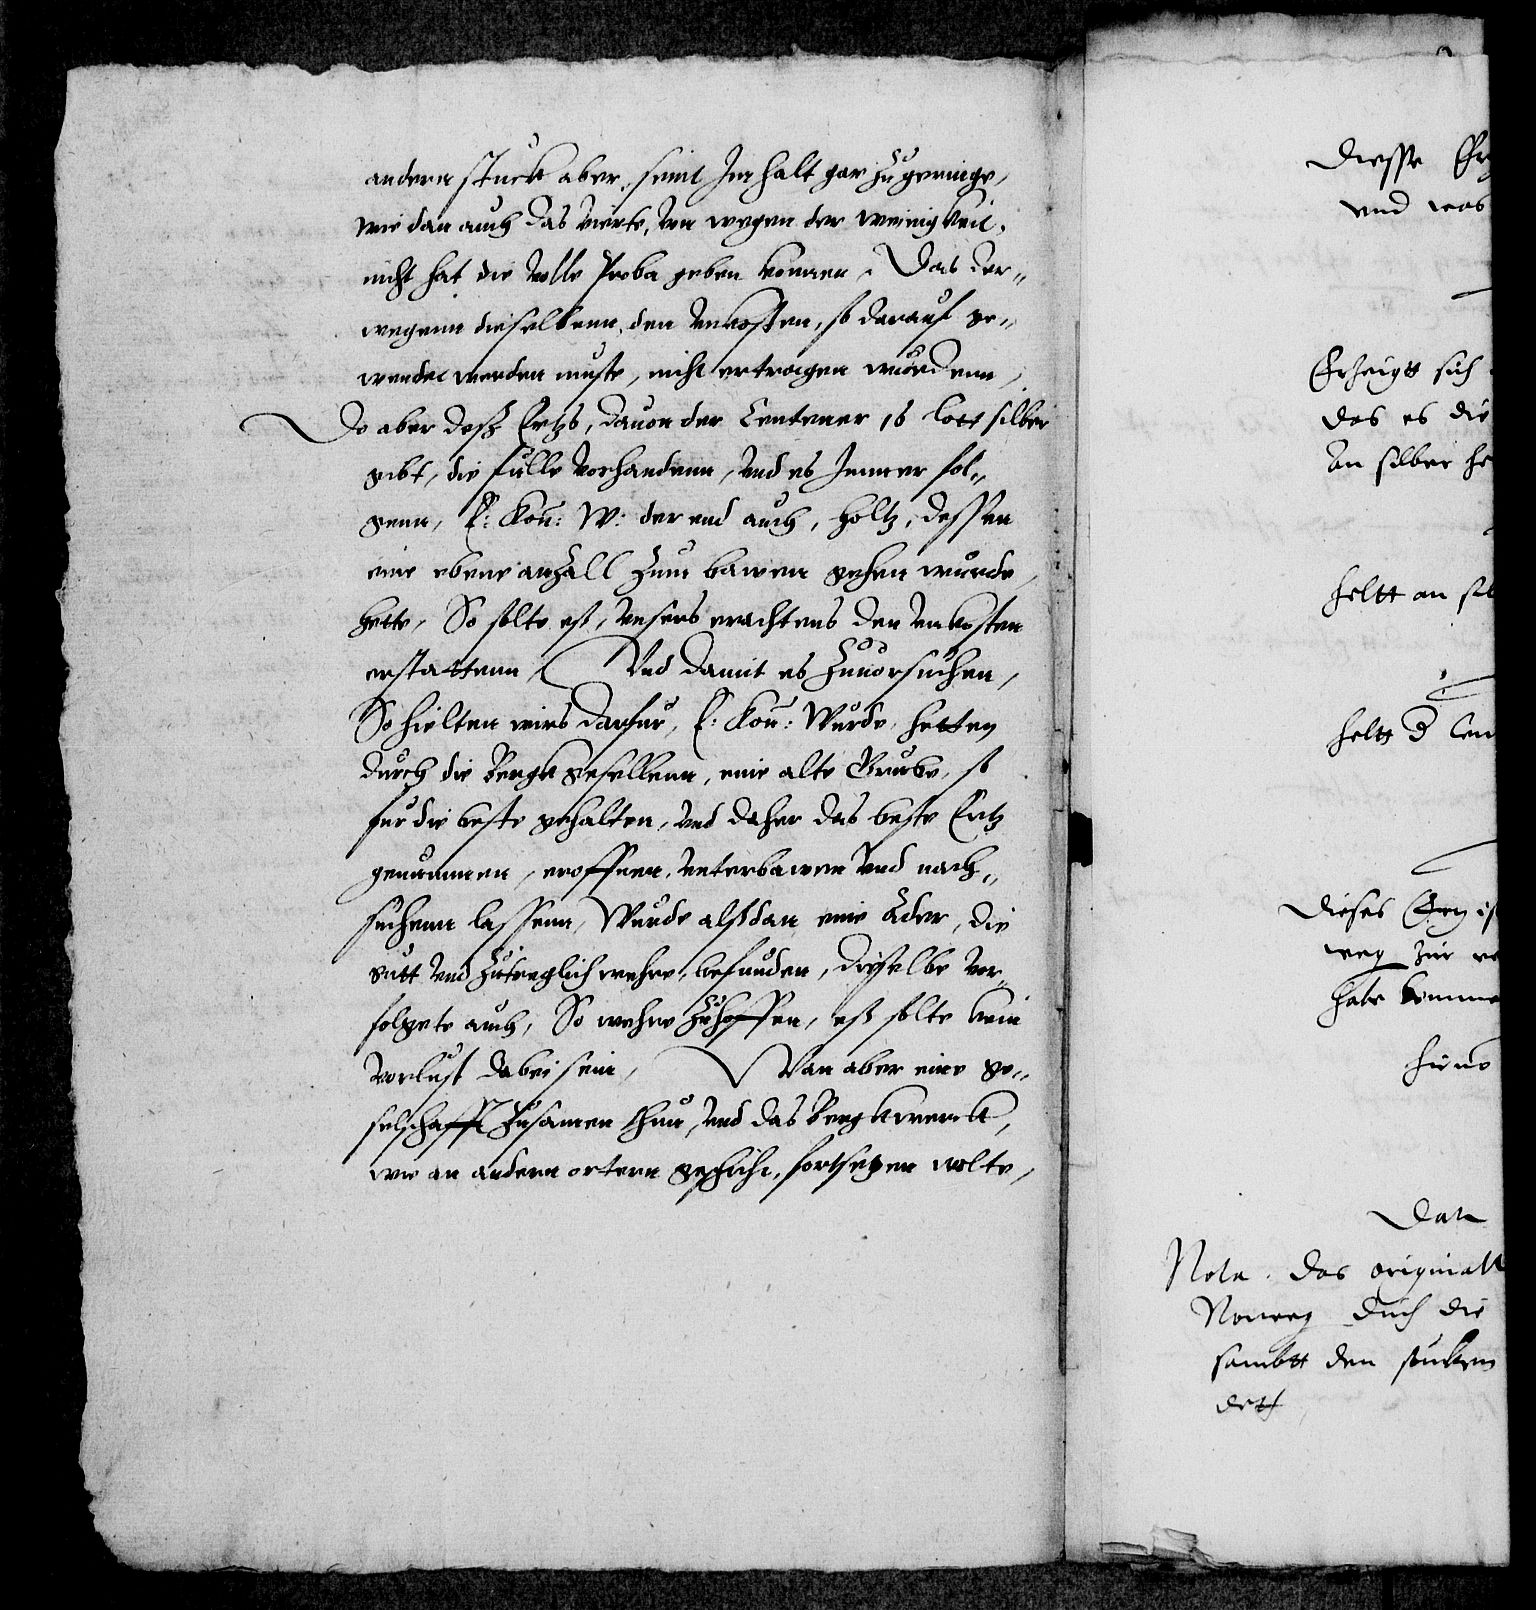 andern stuck aber, seint Im halt gar Zu geringe,
wie dan auch das vierte, von wegen der weinigkeit,
nicht hat die volle Proba geben konnen. Das der-
wegenn dieselbenn, den vnkosten, so darauf ge-
wendet werden muste, nicht ertragen wurdenn,
Do aber deß Ertzs, dauon der Centener 16 lott silber
gibt, die fulle vorhandenn, vnd es Immer fol-
genn, E: Kon: W: der end auch, holtz, dessen
eine ebene anzall Zum bawen gehen wurde,
hette, So solte eß, vnsers erachtens den vnkosten
erstattenn, Vnd damit es Zuuorsuchen,
So hielten wirs darfur, E: Kon: Wurde, hetten
durch die Bergkgesellenn, eine alte Grube, so
fur die beste gehalten, vnd daher das beste Ertz
genummen, eroffnen, vnterbawen vnd nach-
suchenn lassenn, Wurde alßdan eine Ader, die
gutt vnd Zutreglich wehre, befunden, dieselbe vor-
folgete auch, So wehre Zuhoffen, eß solte kein
vorlust dabei sein, Wan aber eine ge-
selschafft Zusamen thun, vnd das Bergkwerck,
wie an andern ortern geschicht, fortsetzen wolte,
Diesse Er
vnd was
Erzeigtt sich
das es die
An silber he
heltt an sil
heltt d Cen
Dieses Ertz is
weg zur
habe komme
hinc
Dat
Nota. das originall
Norweg durch die
sambtt den stucken
dett